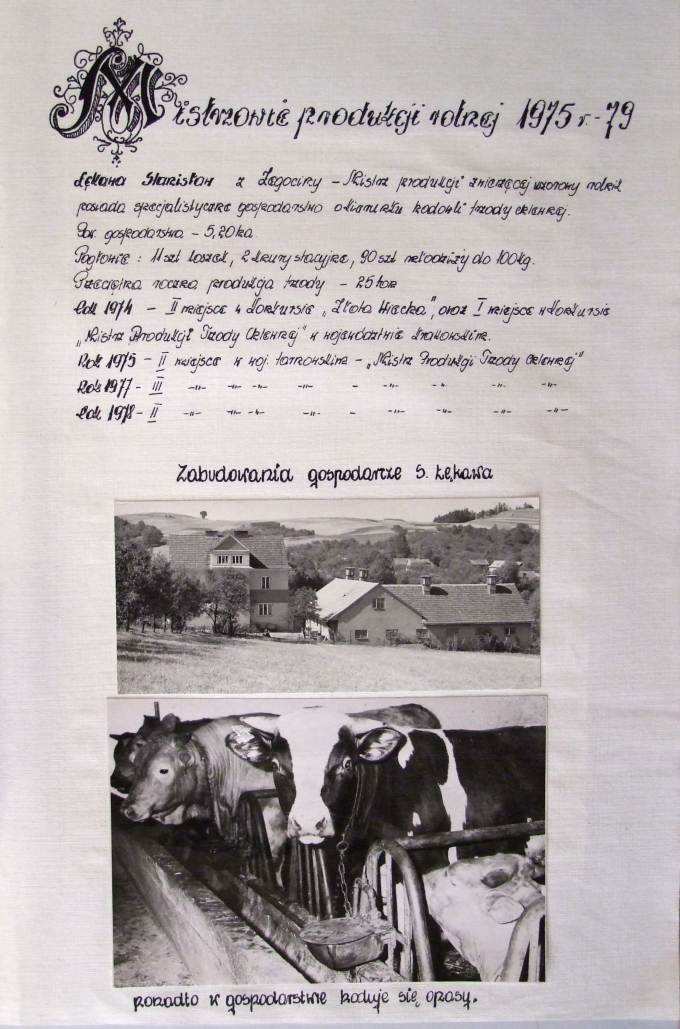 Mistrzowie produkcji rolnej 1975 r. - 79
Łękawa Stanisław z Żegociny - Mistrz produkcji zwierzęcej wzorowy rolnik
posiada specjalistyczne gospodarstwo o kierunku hodowli trzody chlewnej.
Pow. gospodarstwa - 5,20 ha
Pogłowie : 11 szt loszek, 2 knury stacyjne, 90 szt młodzieży do 100 kg.
Przeciętna roczna produkcja trzody - 25 ton
Rok 1974 - II miejsce w Konkursie „Złota Wiecha", oraz I miejsce w Konkursie
„Mistrz Produkcji Trzody Chlewnej" w województwie krakowskim.
Rok 1975 - II miejsce w woj. tarnowskim - „Mistrz Produkcji Trzody Chlewnej"
Rok 1977 - III -„- -„- -„- -„- - -„- -„- -„- -„-
Rok 1978 - II -„- -„- -„- -„- - -„- -„- -„- -„-
Zabudowania gospodarcze S. Łękawa
ponadto w gospodarstwie hoduje się opasy.